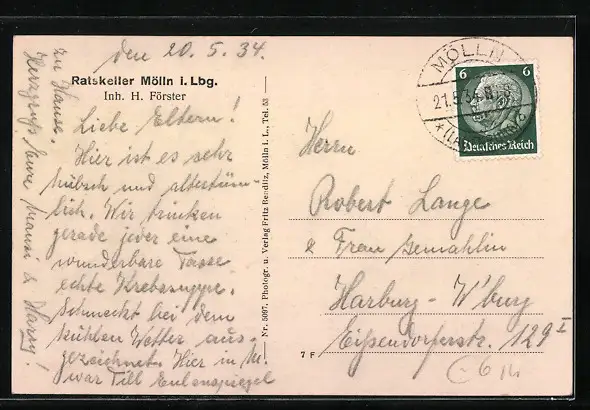 den 20.5.34.
Ratskeller Mölln i. Lbg.
Inh. H. Förster
Liebe Eltern!
Hier ist es sehr
hübsch und altertüm-
lich. Wir trinken
gerade jeder eine
wunderbare Tasse
echte Krebssuppe.
Schmeckt bei dem
kühlen Wetter aus-
gezeichnet. Hier in M.
war Till Eulenspiegel
zu Hause.
Herzgruß Eure & Harry!
Nr. 5097. Photogr. u. Verlag Fritz Rendlitz, Mölln i. L., Tel. 53
MÖLLN
21.5.34
6 6
Deutsches Reich
Herrn
Robert Lange
& Frau Gemahlin
Harburg-W'burg
Eißendorferstr. 129 I
7 F